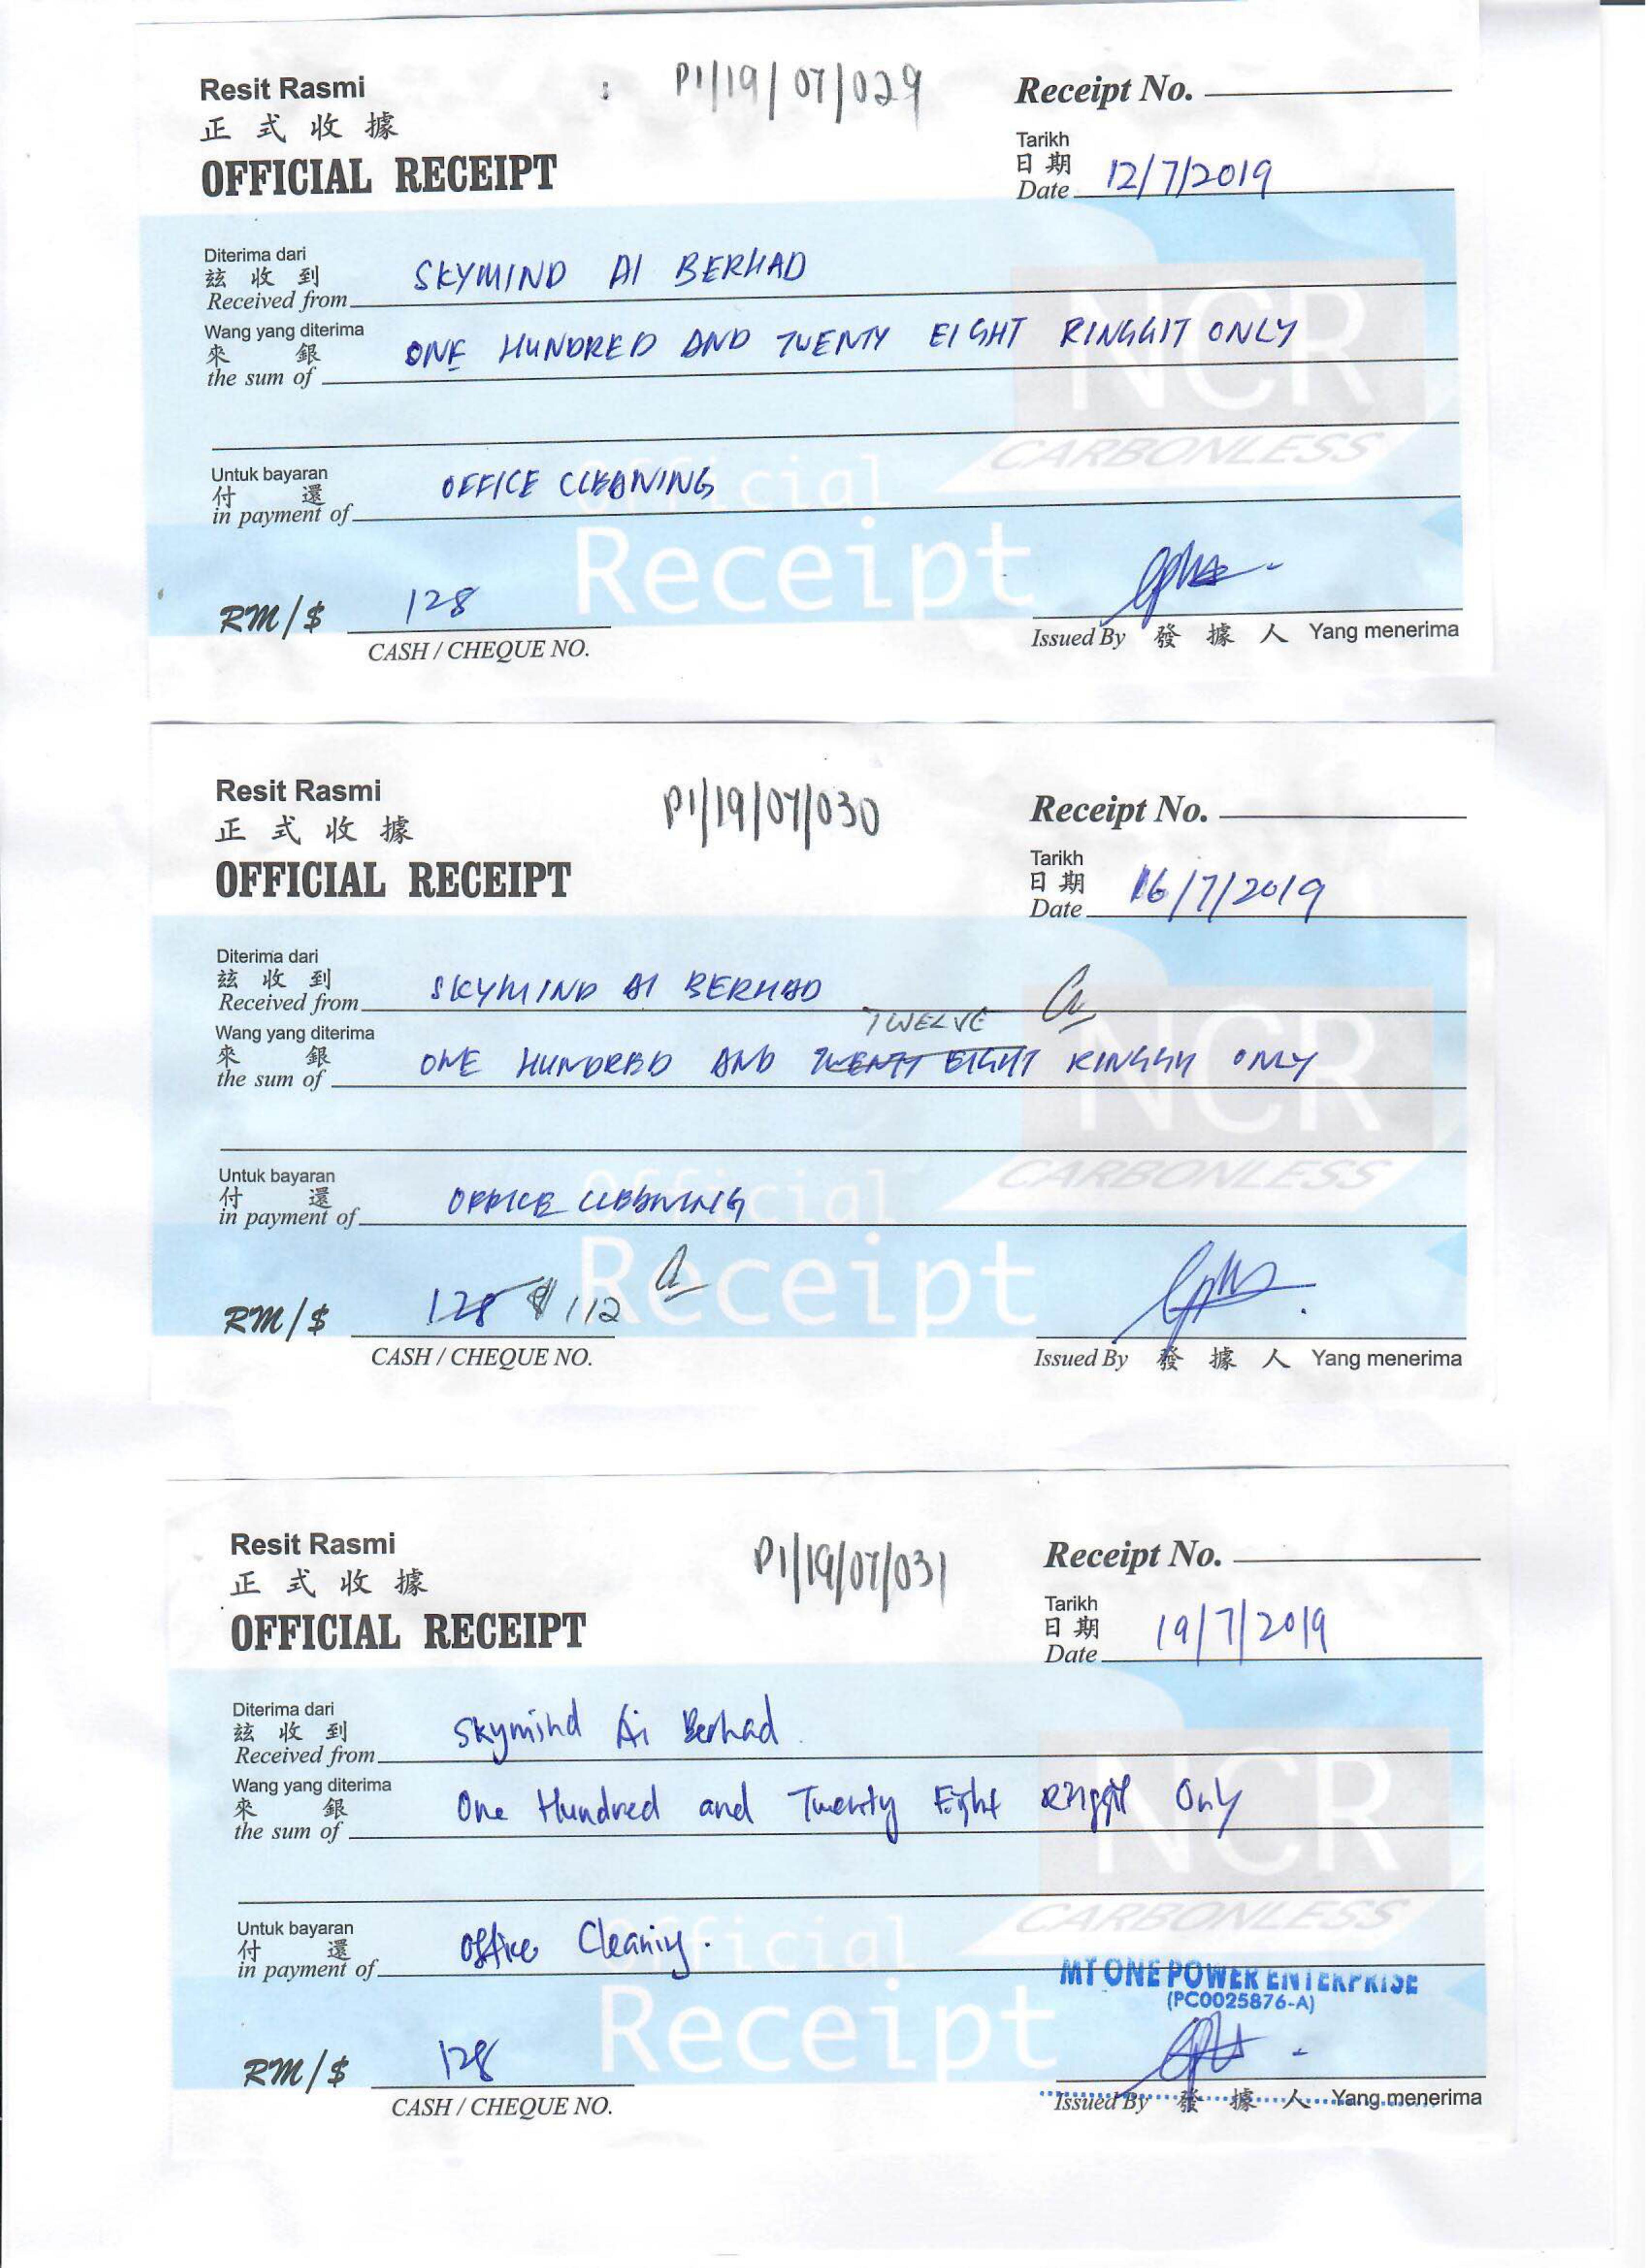 Resit Rasmi
: P1/19/07/029
Receipt No.
正式收據
OFFICIAL RECEIPT
Tarikh
日期
Date 12/7/2019
Diterima dari
茲收到
Received from SKYMIND AI BERHAD
Wang yang diterima
來銀
the sum of ONE HUNDRED AND TWENTY EIGHT RINGGIT ONLY
NCR
CARBONLESS
Untuk bayaran
付還
in payment of OFFICE CLEANING
Official
Receipt
RM/$ 128
CASH / CHEQUE NO.
Issued By 發據人 Yang menerima
Resit Rasmi
P1/19/07/030
Receipt No.
正式收據
OFFICIAL RECEIPT
Tarikh
日期
Date 16/7/2019
Diterima dari
茲收到
Received from SKYMIND AI BERHAD
TWELVE
Wang yang diterima
來銀
the sum of ONE HUNDRED AND TWENTY EIGHT RINGGIT ONLY
NCR
CARBONLESS
Untuk bayaran
付還
in payment of OFFICE CLEANING
Official
Receipt
RM/$ 128 112
CASH / CHEQUE NO.
Issued By 發據人 Yang menerima
Resit Rasmi
P1/19/07/031
Receipt No.
正式收據
OFFICIAL RECEIPT
Tarikh
日期
Date 19/7/2019
Diterima dari
茲收到
Received from Skymind Ai Berhad
Wang yang diterima
來銀
the sum of One Hundred and Twenty Eight Ringgit Only
NCR
CARBONLESS
Untuk bayaran
付還
in payment of Office Cleaning.
Official
Receipt
MT ONE POWER ENTERPRISE
(PC0025876-A)
RM/$ 128
CASH / CHEQUE NO.
Issued By 發據人 Yang menerima